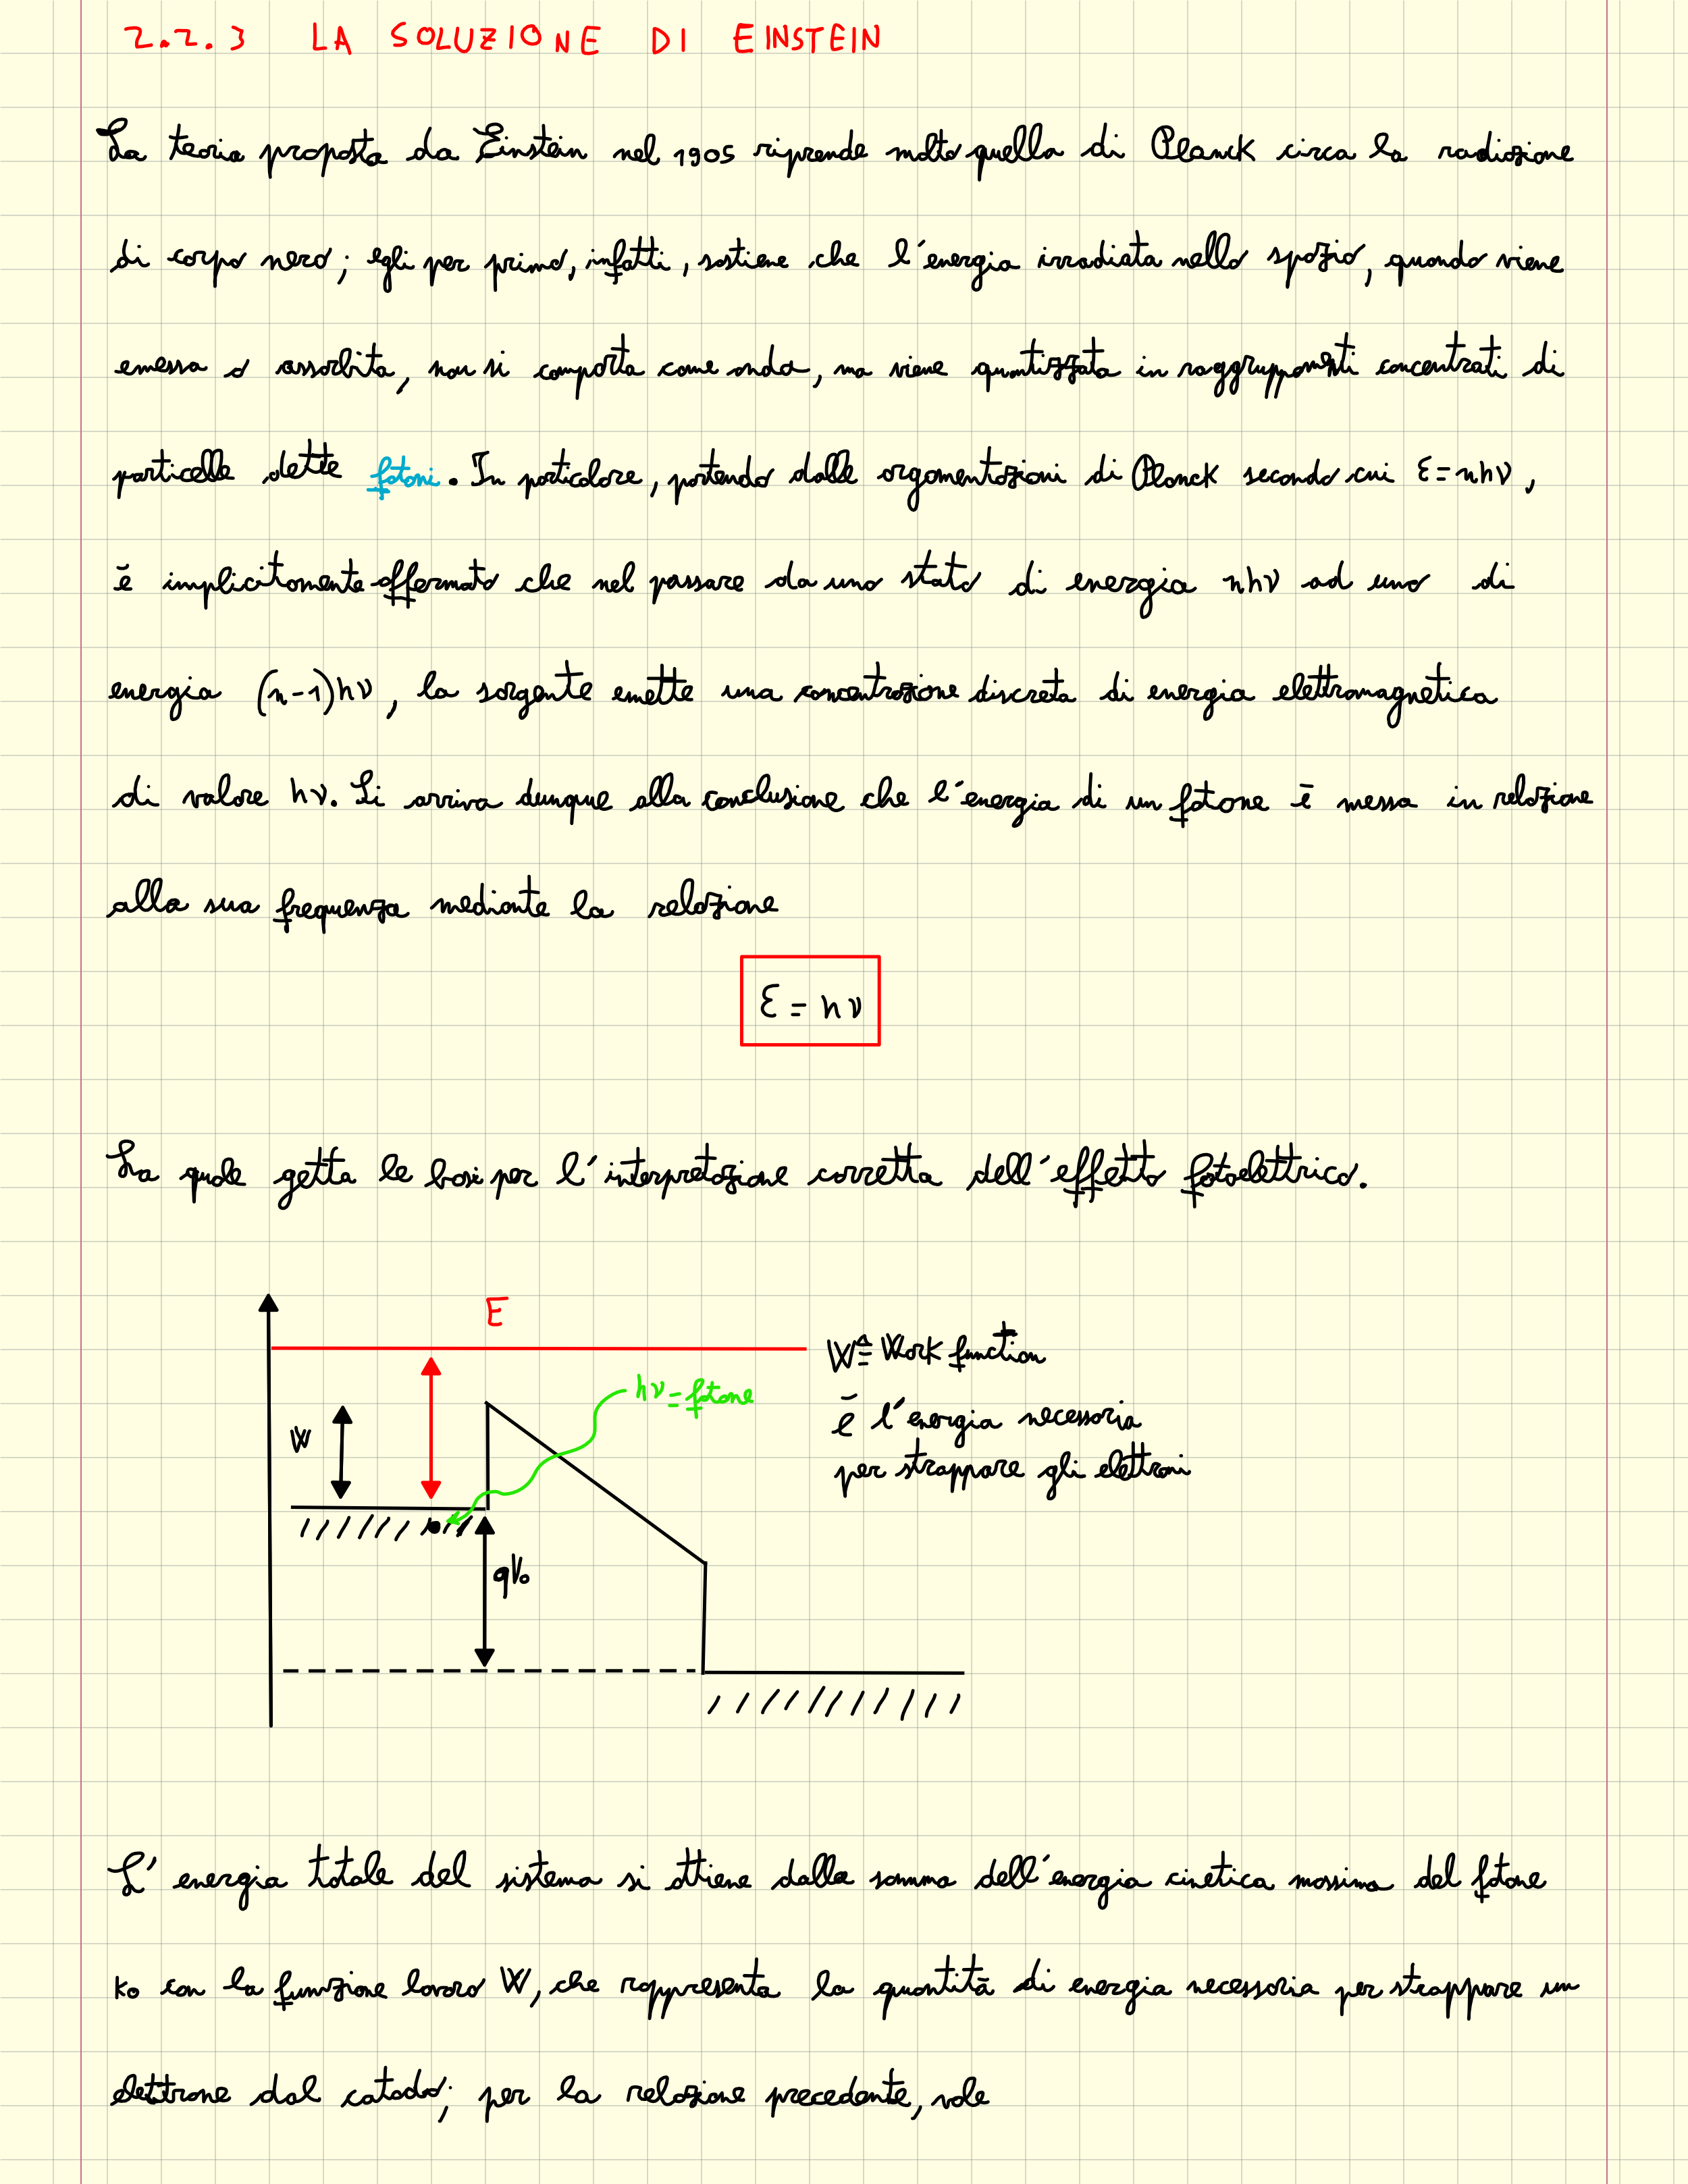 2.2.3 LA SOLUZIONE DI EINSTEIN
La teoria proposta da Einstein nel 1905 riprende molto quella di Planck circa la radiazione
di corpo nero; egli per primo, infatti, sostiene che l'energia irradiata nello spazio, quando viene
emessa o assorbita, non si comporta come onda, ma viene quantizzata in raggruppamenti concentrati di
particelle dette fotoni. In particolare, partendo dalle argomentazioni di Planck secondo cui ℰ=nhν,
è implicitamente affermato che nel passare da uno stato di energia nhν ad uno di
energia (n-1)hν, la sorgente emette una concentrazione discreta di energia elettromagnetica
di valore hν. Si arriva dunque alla conclusione che l'energia di un fotone è messa in relazione
alla sua frequenza mediante la relazione
ℰ = hν
La quale getta le basi per l'interpretazione corretta dell'effetto fotoelettrico.
E
W ≙ Work function
hν = fotone
è l'energia necessaria
W
per strappare gli elettroni
qV₀
L'energia totale del sistema si ottiene dalla somma dell'energia cinetica massima del fotone
K₀ con la funzione lavoro W, che rappresenta la quantità di energia necessaria per strappare un
elettrone dal catodo; per la relazione precedente, vale